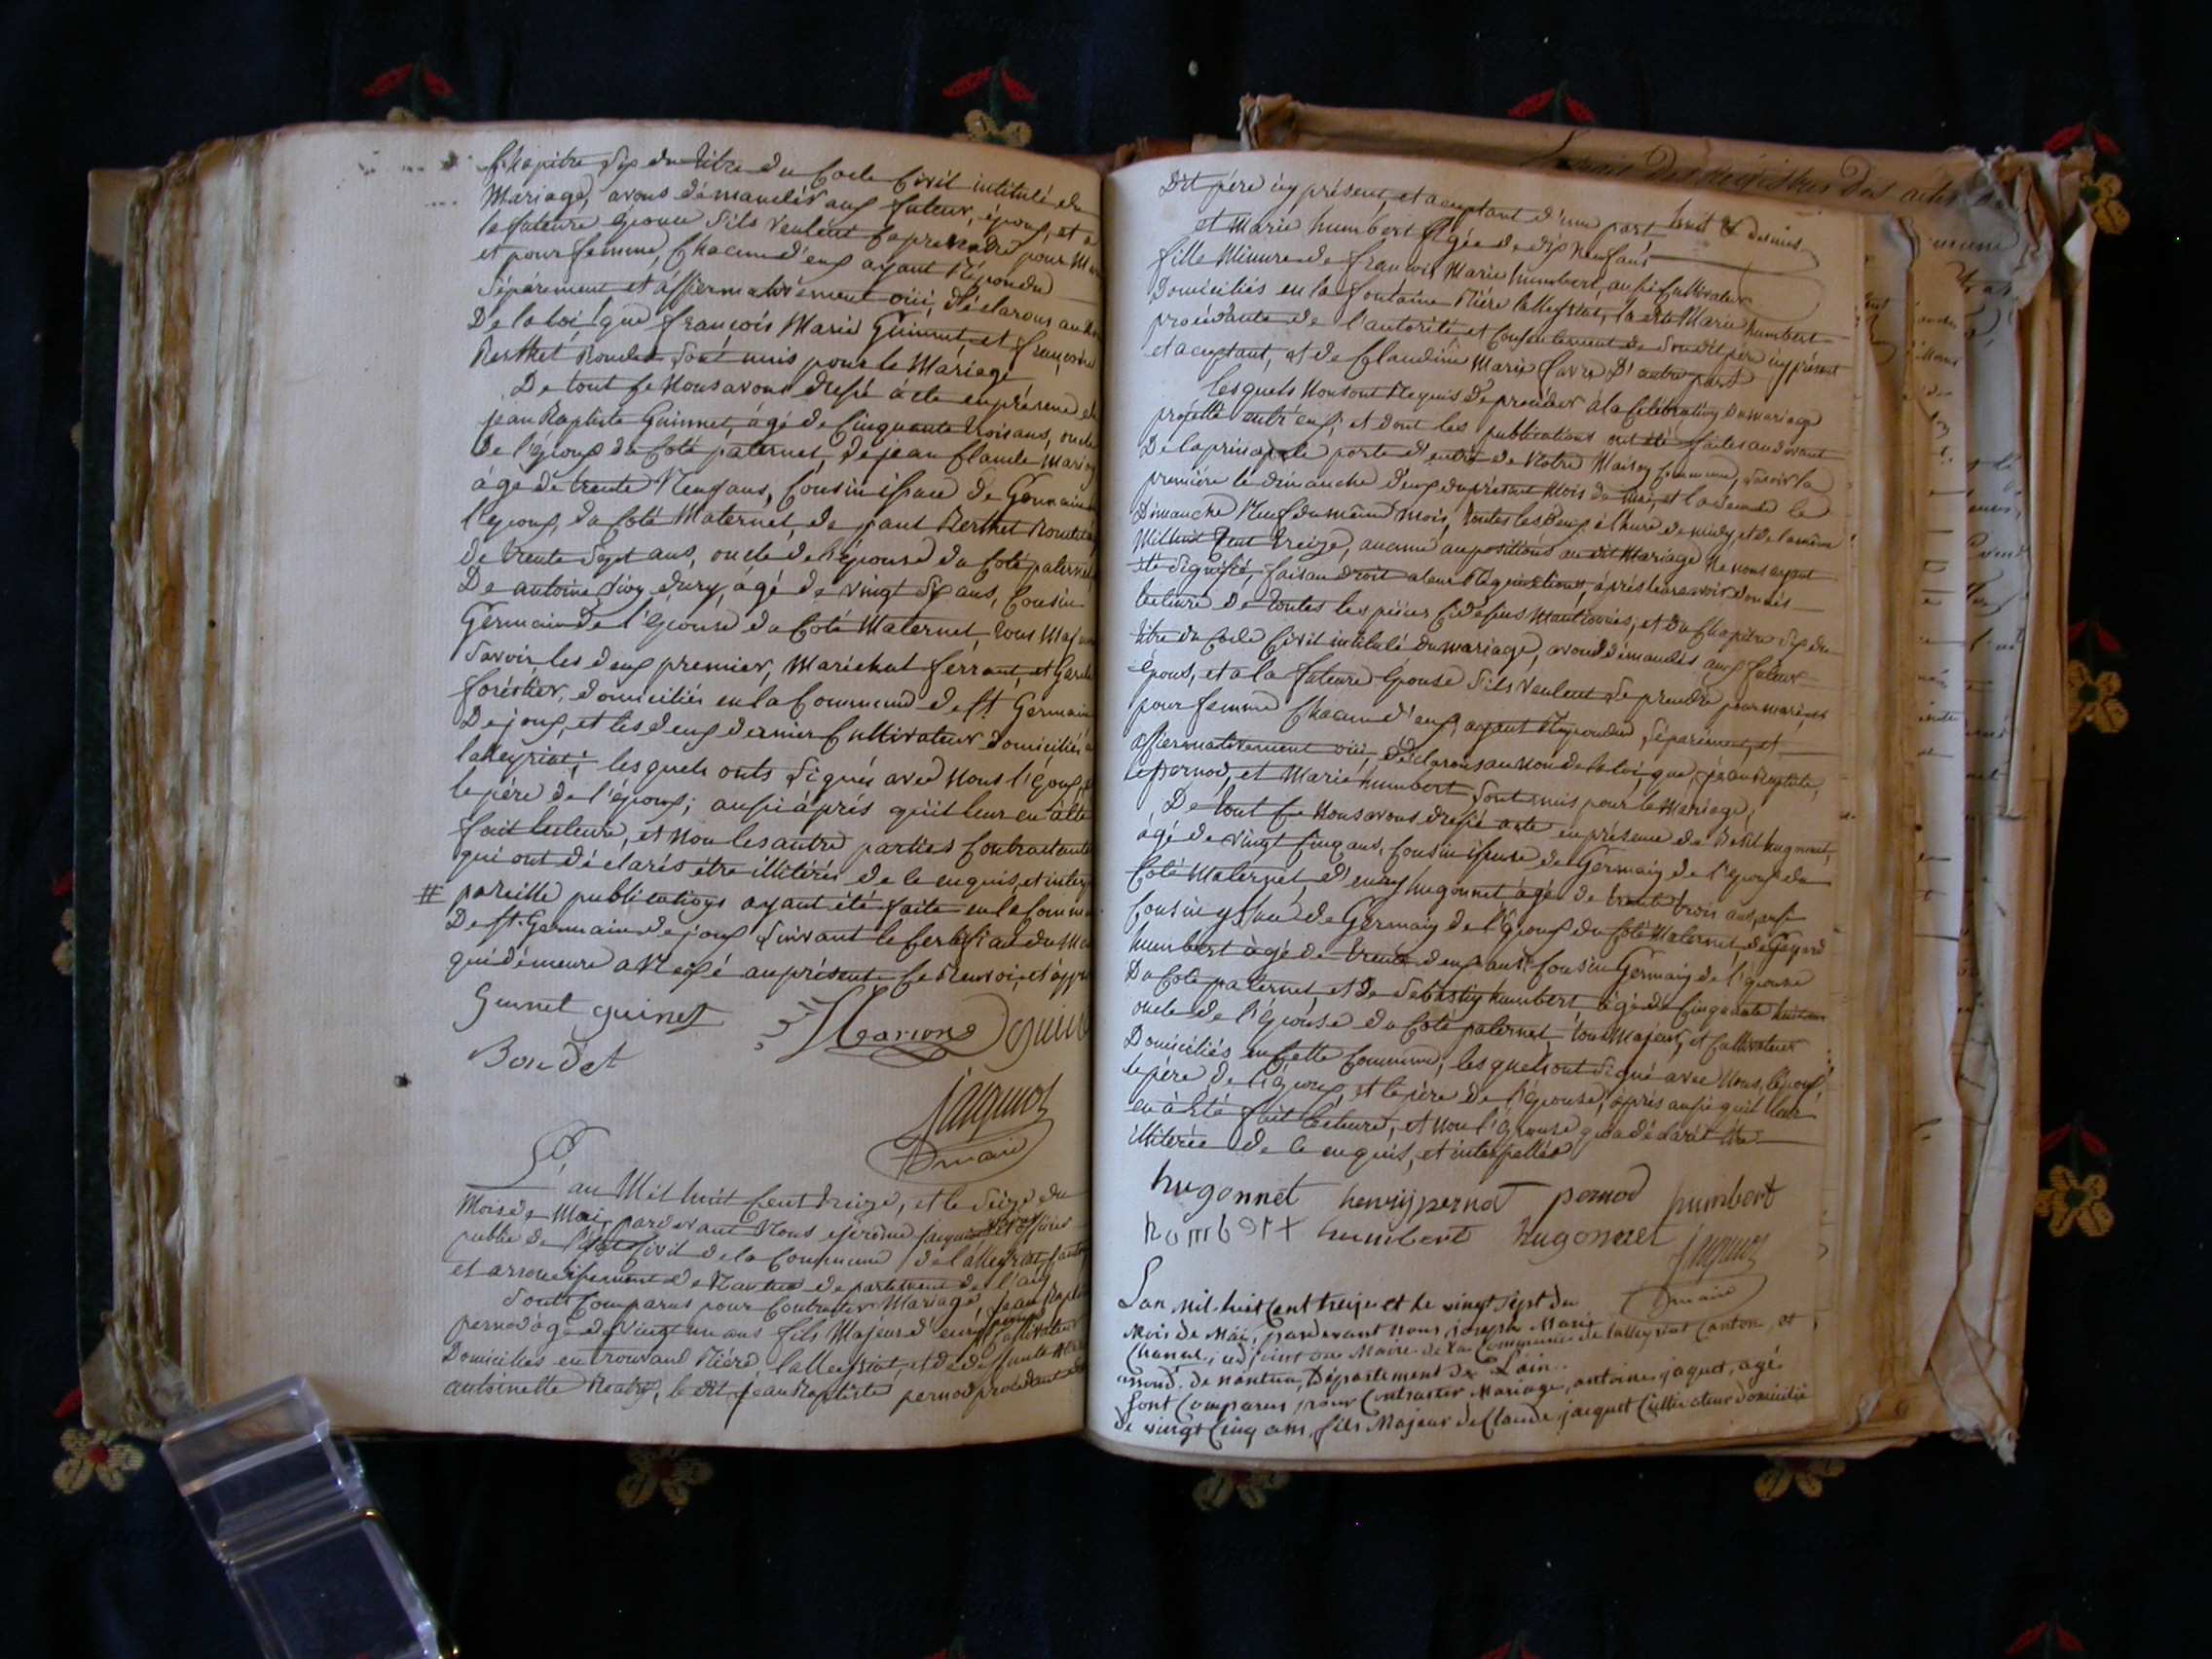 Chapitre Six du titre du Code Civil intitulé du
Mariage, avons démandér aux futeur, époux, et a
la futeure épouse s'ils veulent se prendre pour Mari
et pour femme, Chacun d'eux ayant Répondu
Séparément et affiermativément oüi, déclarons au
De la loi que françois Marie Guinnet et françoise
Berthet Rondet sont unis pour le Mariage
De tout ce Nous avons dressé acte en présence de
jean Baptiste Guinnet, âgé de Cinquante trois ans, oncle
De l'époux du Coté paternel, De jean Claude Marion
âgé de trente Neuf ans, Cousin issue de Germain
l'époux, du Coté Maternel, de paul Berthet Rondet
de trente Sept ans, oncle de l'épouse du Coté paternel
De antoine edury, âgé de vingt Six ans, Cousin
Germain de l'épouse du Coté Maternel, tous Majeur
Savoir les deux premier, Maréchal ferrant, et Garde
foréstier, domiciliés en la Commune de St Germain
De joux, et les deux dernier Cultivateur domiciliés
lalleyriat, lesquels onts signés avec Nous l'époux,
le père de l'époux; aussi après qu'il leur en à été
fait lecteure, et Non les autre parties Contractante
qui ont déclarés être illitérés de ce enquis, et interp
# pareille publications ayant été faite en la Commune
De St. Germain de joux Suivant le Certificat du
qui démeure anexé au présente ce Renvoi, et appr
Guinet guinet Marion guin
Bondet
jaquinod
maire
L'an Mil huit Cent treize, et le Seize du
Mois de Mai, pardevant Nous jérôme jaquinod officier
public de l'état Civil de la Commune de lalleyriat, Canton
et arrondissement de Nantua département de l'ain
Sont Comparus pour Contracter Mariage, jean Baptiste
pernod âgé de vingt un ans fils Majeur d'enry pernod Cultivateur
Domiciliés en trouvand Rière lalleyriat, et de defunte
antoinette, le dit jean Baptiste pernod procédant
Dit père icy présent, et aceptant d'une part
et Marie humbert âgée de dix Neuf ans
fille Mineure de françois Marie humbert, aussi Cultivateur
Domiciliés en la fontaine Rière lalleyriat, la dite Marie humbert
procédante de l'autorité et Consentement de Son dit père icy présent
et aceptant, et de Claudine Marie favre D'autre part
lesquels Nous ont Requis de procéder à la Célébration du mariage
projetté entr'eux; et dont les publications ont été faites au dévant
De la principale porte d'entré de Notre Maison Commune, savoir la
première le dimanche deux du présent Mois de Mai, et la seconde le
Dimanche Neuf du même mois, toutes les deux à l'heure de midy, et de la même
Mil huit Cent treize, aucune aupositions au dit Mariage Ne nous ayant
été signifié, faisan droit a leur Réquisitions, après leur avoir donnés
lecteure De toutes les pièces Cidessus Mantionnés, et du Chapitre Six du
titre du Code Civil intitulé du mariage, avons démandés aux futeur
époux, et a la futeure épouse s'ils veulent se prendre pour mari, et
pour femme Chacun d'eux, ayant Répondu, Séparément, et
affiermativement oüi, déclarons au Nom de la loi, que jean Baptiste
pernod, et Marie humbert Sont unis pour le Mariage,
De tout ce Nous avons dressé acte en présence de hugonnet,
âgé de vingt Cinq ans, Cousin issue de Germain de l'époux du
Coté Maternel, d'enry hugonnet âgé de trente trois ans, aussi
Cousin yssue de Germain de l'époux du Coté Maternel, de
humbert âgé de trente deux ans, Cousin Germain de l'épouse
Du Coté paternel, et de Sébastin humbert, âgé de Cinquante huit ans
oncle de l'épouse du Coté paternel, tous Majeur, et Cultivateur
Domiciliés en Cette Commune, lesquels ont Signé avec Nous, l'époux,
le père de l'époux, et le père de l'épouse, après aussi qu'il leur
en à été fait lecteure, et Non l'épouse qui a déclaré être
illiterée de ce enquis, et interpellée
hugonnet henry pernod pernod humbert
humbert humbert hugonnet jaquinod
maire
L'an mil huit Cent treize et le vingt sept du
Mois de Mai, pardevant nous joseph Marie
Chanal, adjoint au Maire de la Commune de lalleyriat Canton, et
arrond. de nantua, Département de Lain.
Sont Comparus pour Contracter Mariage, antoine jaquet, agé
de vingt Cinq ans, fils Majeur de Claude jacquet Cultivateur domicilié